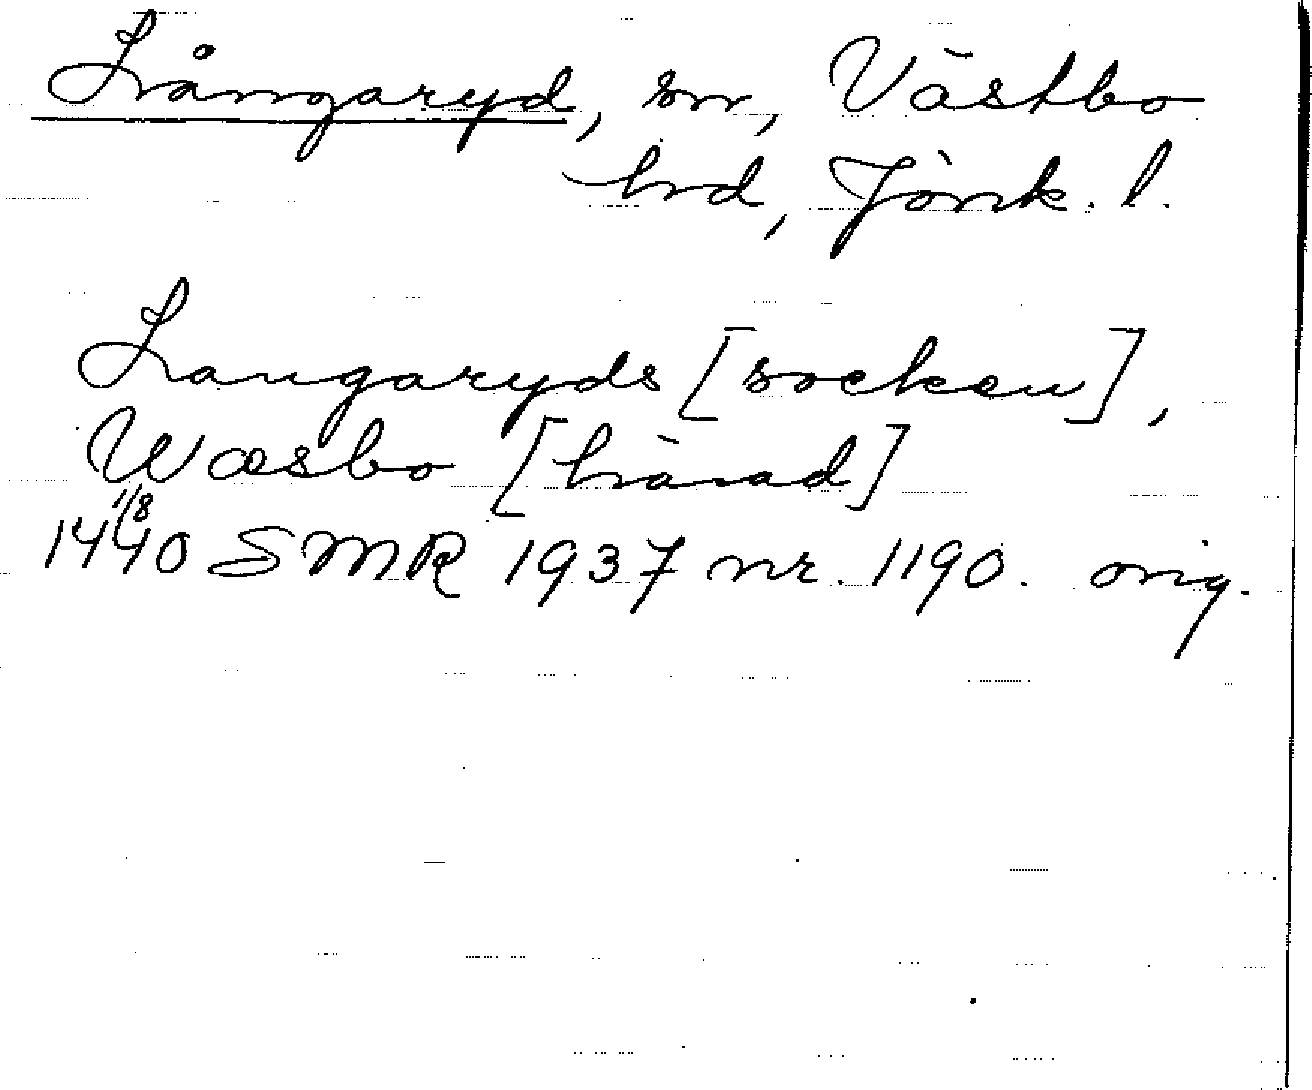 Långaryd, sn, Västbo
hd, Jönk. l.
Langaryds [socken],
Wæsbo [härad]
1440 1/8 SMR 1937 nr. 1190. orig.